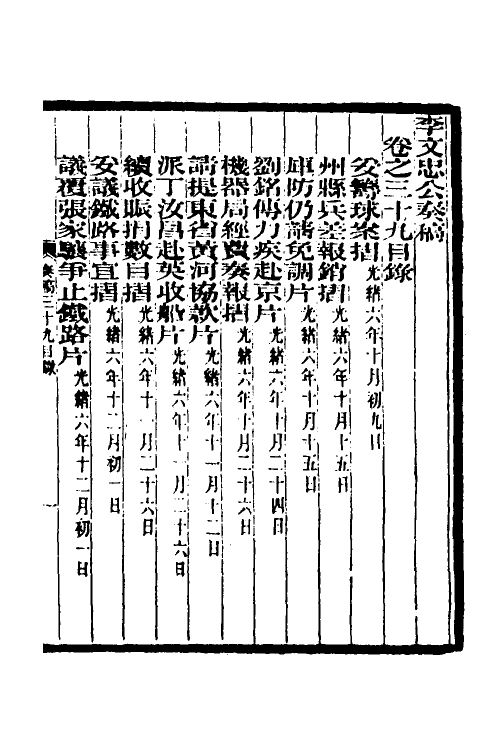 李文忠公奏稿
卷之三十九目錄
妥籌球案摺 光緒六年十月初九日
州縣兵差報銷摺 光緒六年十月十五日
軍防仍請免調片 光緒六年十月十五日
劉銘傳力疾赴京片 光緒六年十月二十四日
機器局經費奏報摺 光緒六年十月二十六日
請提東省黃河協款片 光緒六年十一月十二日
派丁汝昌赴英收船片 光緒六年十一月二十六日
續收賑捐數目摺 光緒六年十一月二十六日
妥議鐵路事宜摺 光緒六年十二月初一日
議覆張家驤爭止鐵路片 光緒六年十二月初一日
奏稿三十九目錄